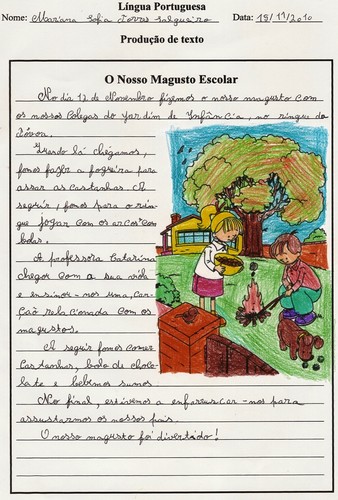 Língua Portuguesa
Nome: Mariana Sofia Torres Salgueiro Data: 18/11/2010
Produção de texto
O Nosso Magusto Escolar
No dia 12 de Novembro fizemos o nosso magusto com
os nossos colegas do Jardim de Infância, no ringue da
Póvoa.
Quando lá chégamos,
fomos fazer a fogueira para
assar as castanhas. A
seguir, fomos para o rin-
gue jogar com os arcos com
bolas.
A professora Catarina
chegou com a sua viola
e ensinou-nos uma can-
ção relacionada com os
magustos.
A seguir fomos comer
castanhas, bolo de choco-
late e bebemos sumos.
No final, estivemos a enfarruscar-nos para
assustarmos os nossos pais.
O nosso magusto foi divertido!